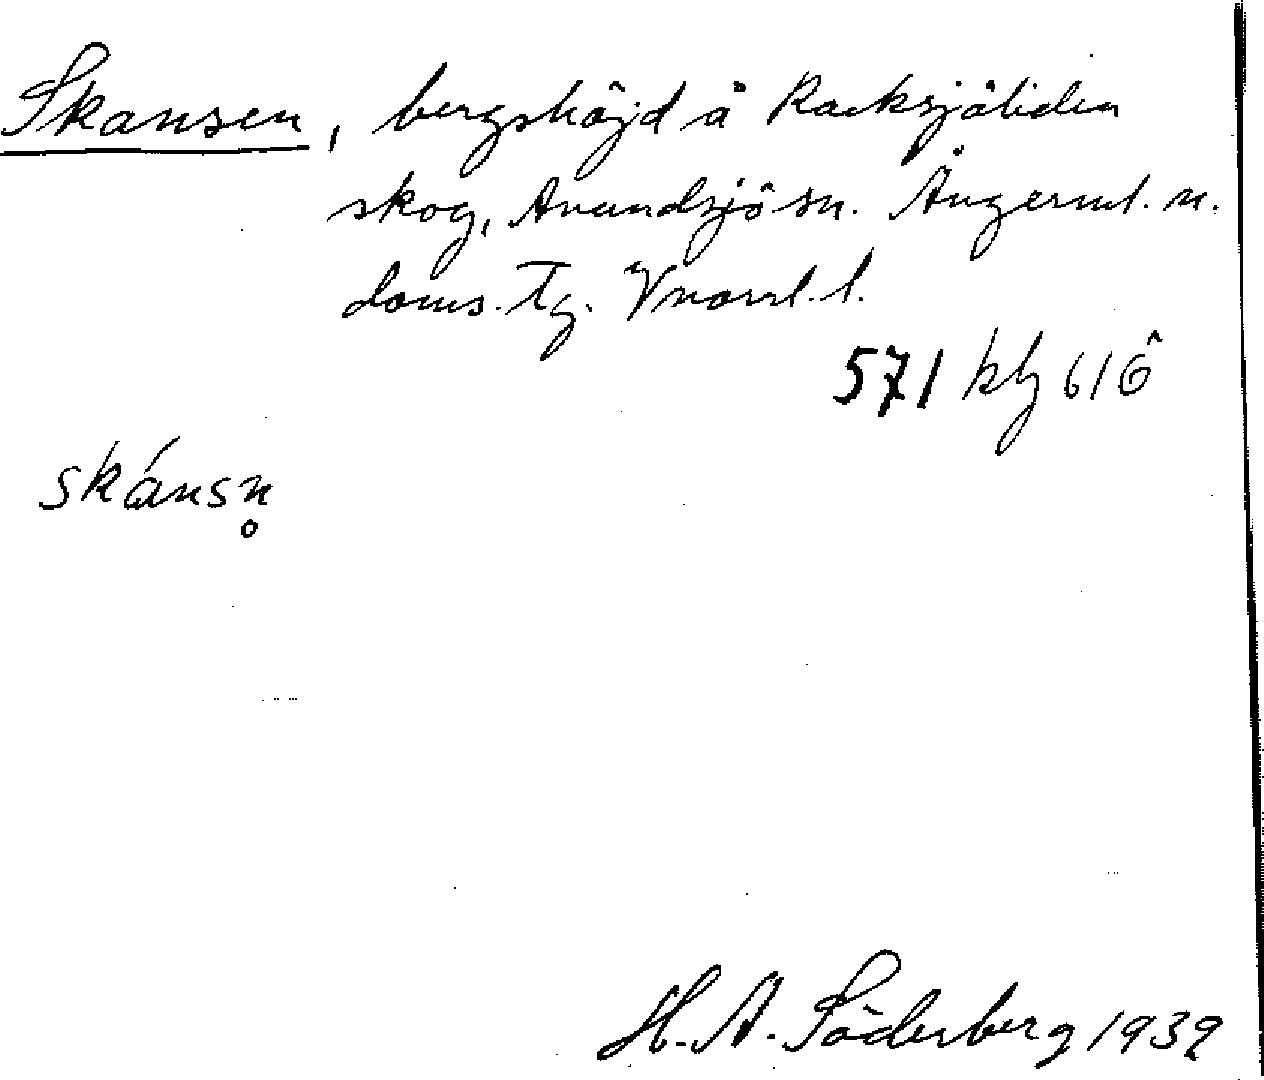 Skansen, bergshöjd å Racksjöliden
skog, Anundsjö sn. Ångerml. n.
doms. Tg. Vnorrl. l.
571 klg 616
skánsn̥
H. A. Söderberg 1939